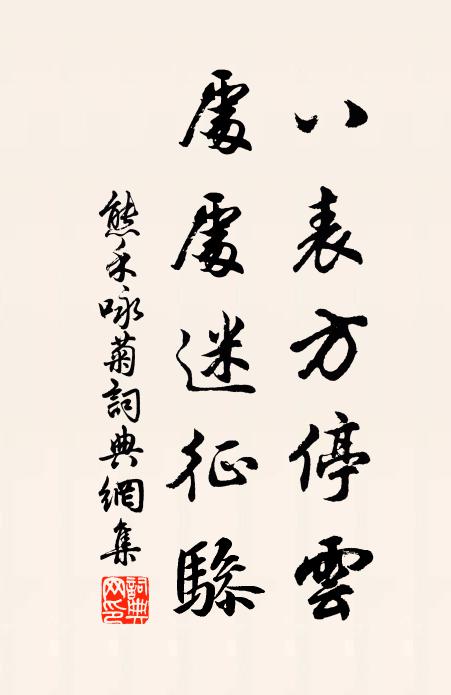 八表方停雲
處處迷征驂
熊禾咏菊詞典網集
詞典網印